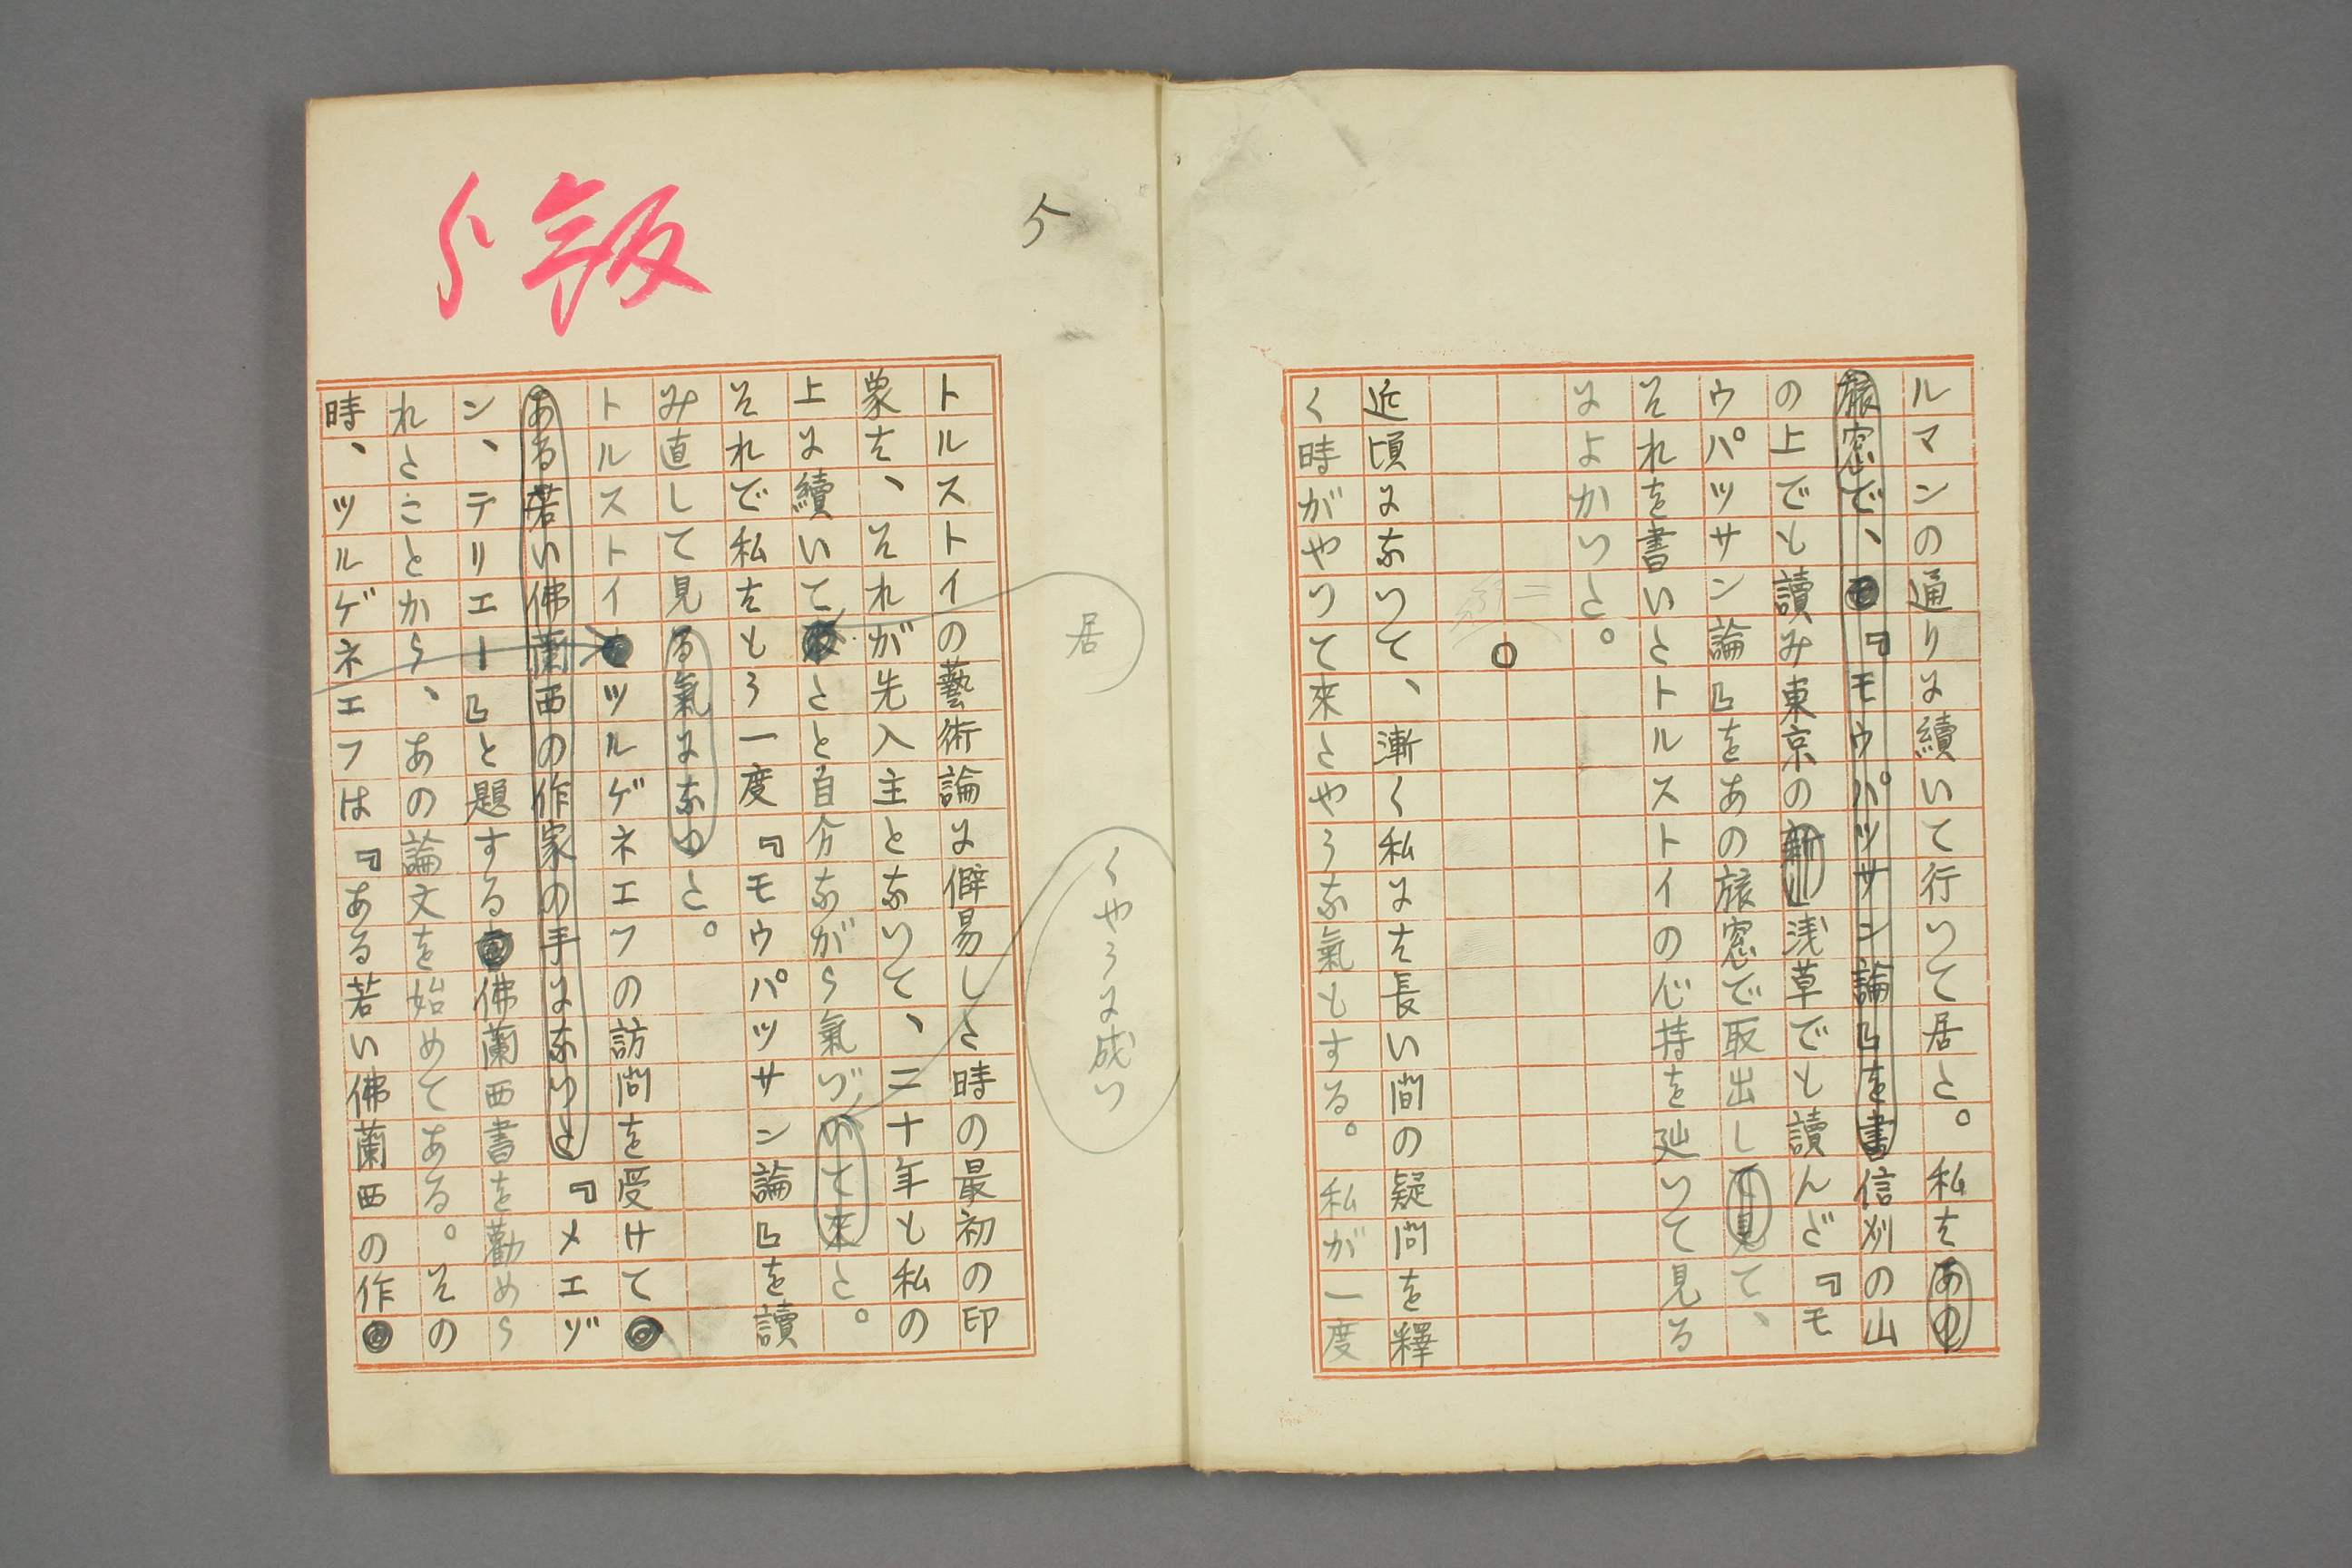 ルマンの通りに續いて行つて居た。私はあの
旅窓で、『モウパッサン論』を書信州の山
の上でも讀み東京の新山浅草でも讀んだ『モ
ウパッサン論』をあの旅窓で取出して見て、
それを書いたトルストイの心持を辿つて見る
によかつた。
〇
近頃になつて、漸く私には長い間の疑問を釋
く時がやつて來たやうな氣もする。私が一度
5
トルストイの藝術論に僻易した時の最初の印
象は、それが先入主となつて、二十年も私の
上に續いて居たと自分ながら氣づいて來た。
くやうに成つ
それで私はもう一度『モウパッサン論』を讀
み直して見る氣になつた。
トルストイツルゲネエフの訪問を受けて
ある若い佛蘭西の作家の手になつた『メエゾ
ン、テリエー』と題する佛蘭西書を勸めら
れたことから、あの論文を始めてある。その
時、ツルゲネエフは『ある若い佛蘭西の作